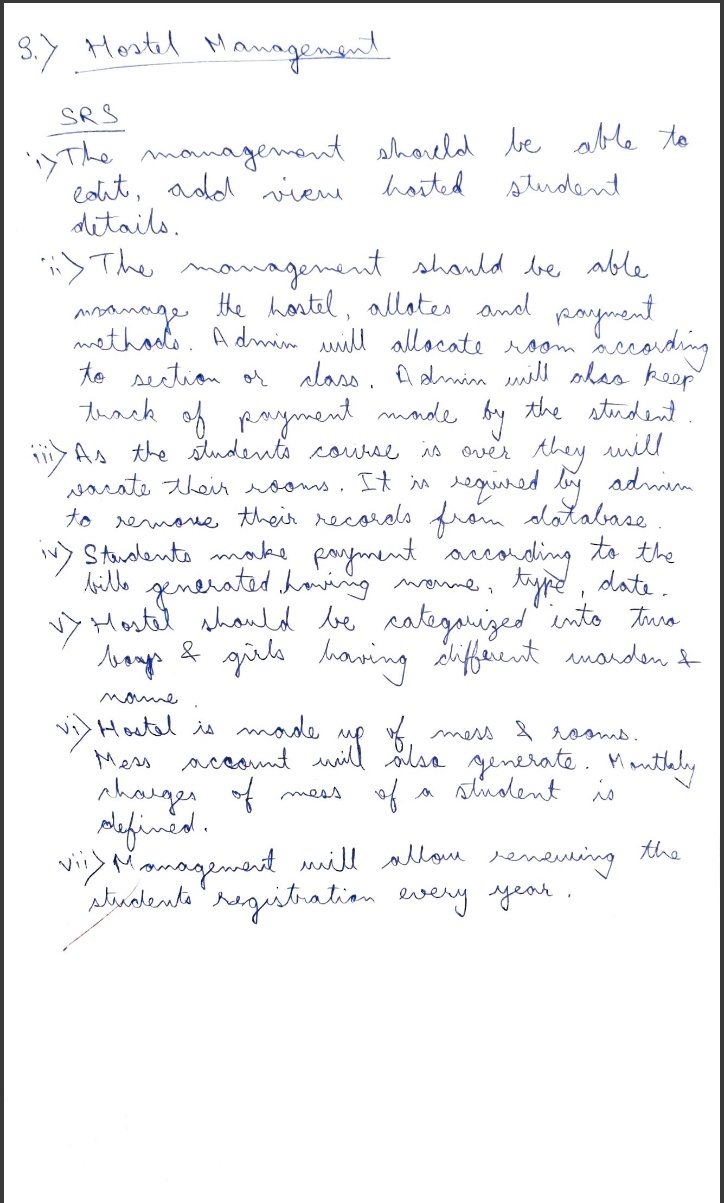 3.> Hostel Management
SRS
i> The management should be able to
edit, add view hosted student
details.
ii> The management should be able
manage the hostel, allotes and payment
methods. Admin will allocate room according
to section or class. Admin will also keep
track of payment made by the student.
iii> As the students course is over they will
vacate their rooms. It is required by admin
to remove their records from database.
iv> Students make payment according to the
bills generated having name, type, date.
v> Hostel should be categorized into two
boys & girls having different warden &
name.
vi> Hostel is made up of mess & rooms.
Mess account will also generate. Monthly
charges of mess of a student is
defined.
vii> Management will allow renewing the
students registration every year.